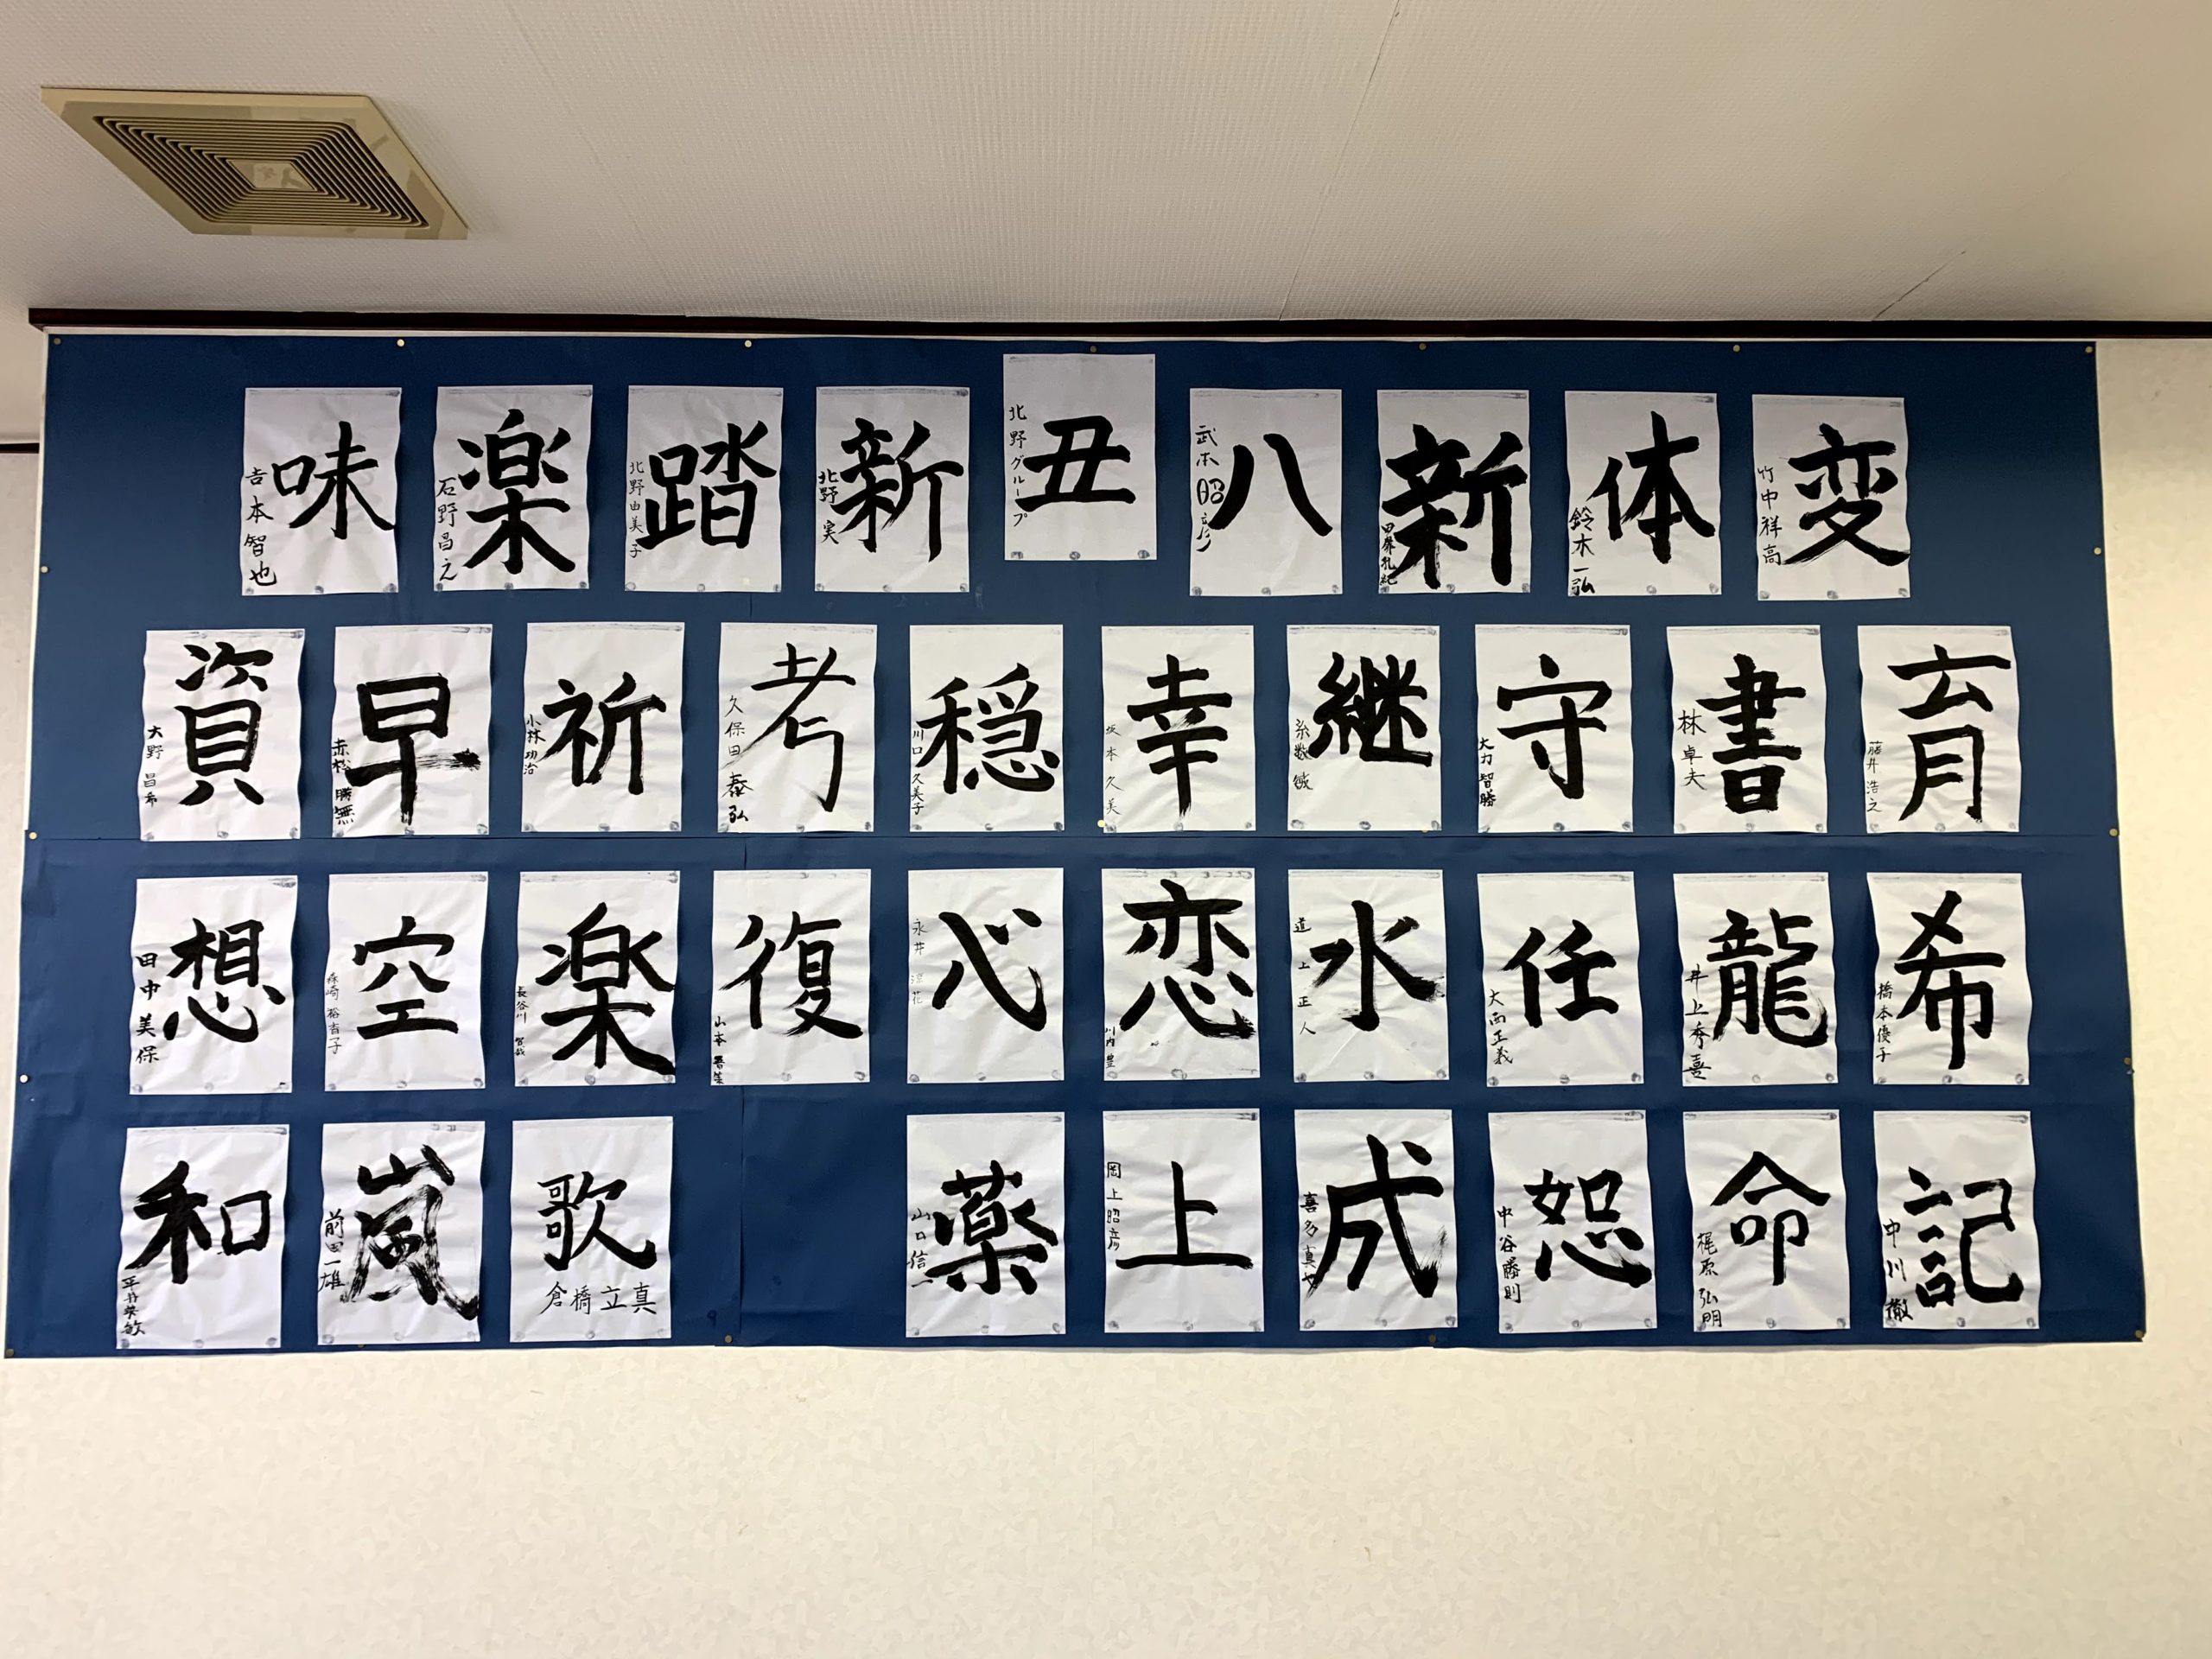 味
吉本智也
楽
石野昌之
踏
北野由美子
新
北野 実
丑
北野グループ
八
武本昭彦
新
体
鈴木一弘
変
竹中祥高
資
大野昌希
早
赤松勝無
祈
小林功治
考
久保田泰弘
穏
川口久美子
幸
坂本久美
継
糸数
守
大力智勝
書
林卓夫
育
藤井浩之
想
田中美保
空
楽
長谷川
復
山本
心
永井
恋
川内豊
水
道上正人
任
大西正義
龍
井上秀喜
希
橋本優子
和
平井
嵐
前田一雄
歌
倉橋立真
薬
山口信一
上
岡上昭彦
成
喜多真也
恕
中谷藤則
命
梶原弘明
記
中川徹